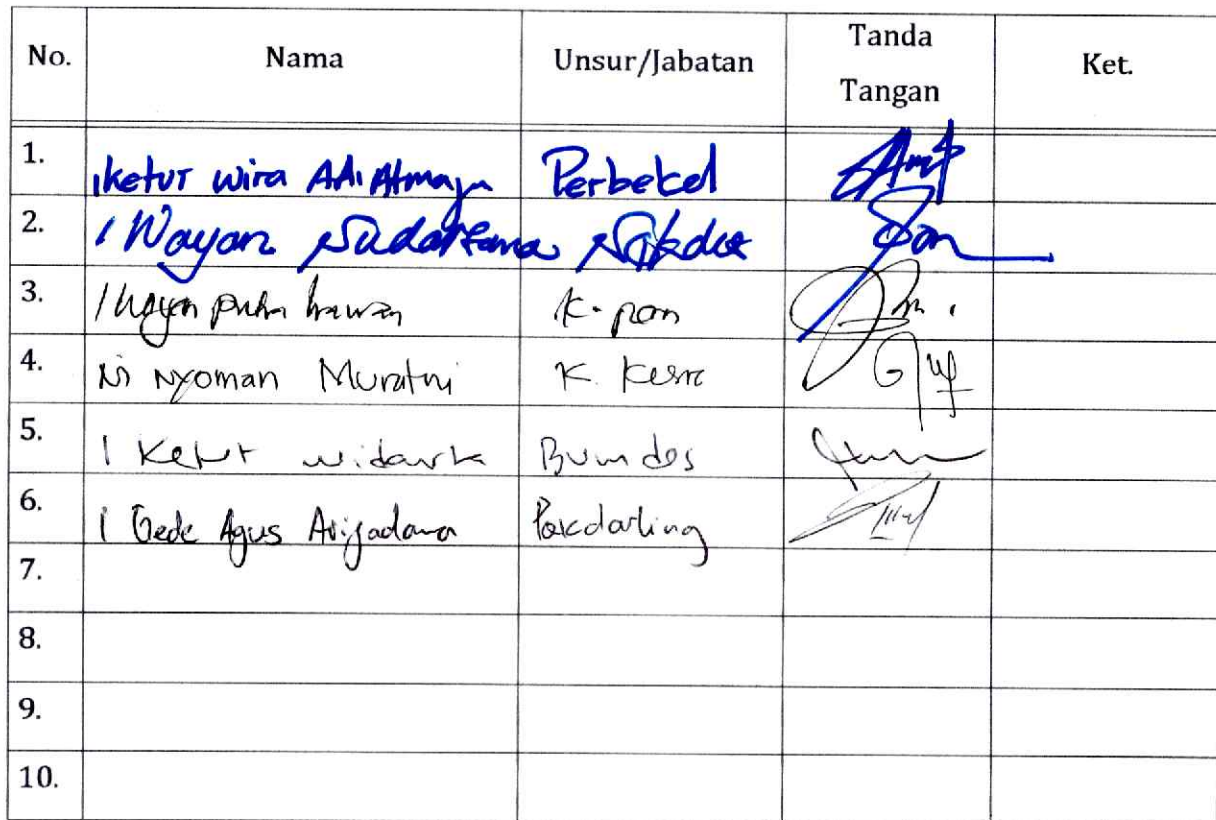 No. Nama Unsur/Jabatan Tanda Tangan Ket.
1. I Ketut Wira Adi Atmaja Perbekel
2. I Wayan Sudartana Sekdes
3. I Wayan Putra K.
4. Ni Nyoman Muratni K. Kesra
5. I Ketut Bumdes
6. I Gede Agus
7.
8.
9.
10.